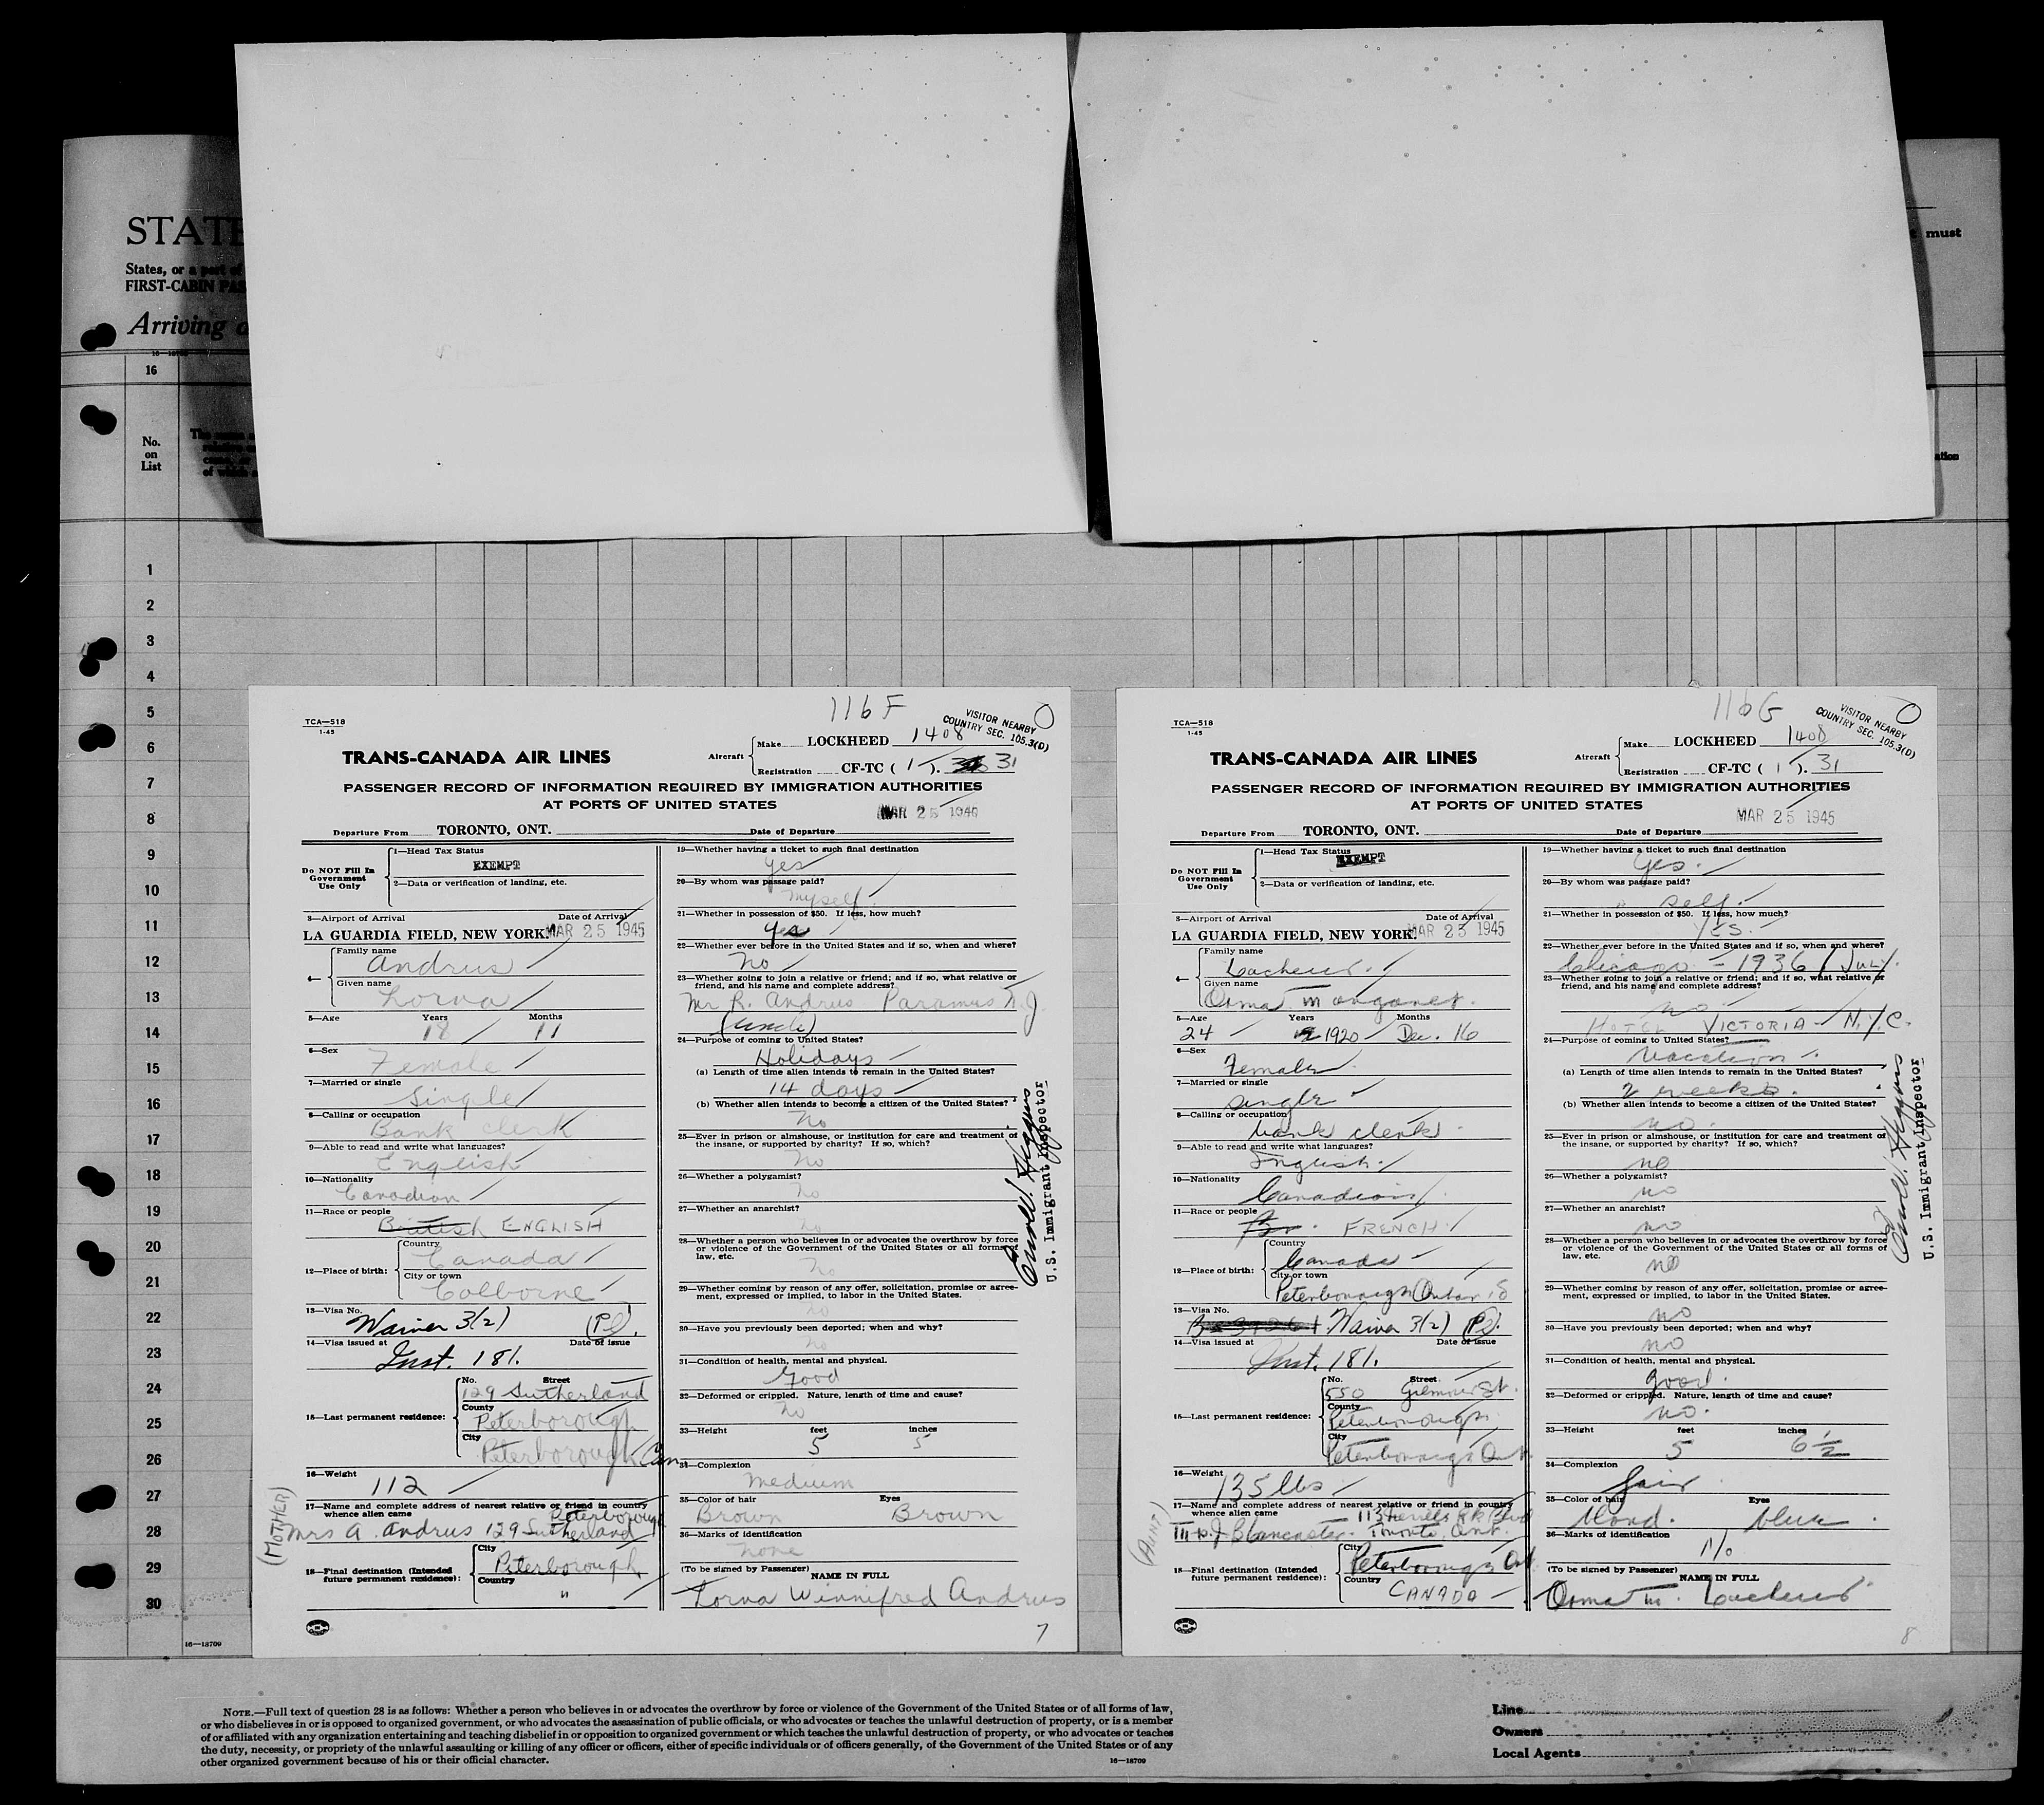 STATE
States, or a part of
FIRST-CABIN PAS
Arriving a
must
16
No.
on
List
of which
ation
1
2
3
4
5
6
7
8
9
10
11
12
13
14
15
16
17
18
19
20
21
22
23
24
25
26
27
28
29
30
16—18709
116 F
TCA—518
1-45
VISITOR NEARBY
COUNTRY SEC. 105.3(D)
TRANS-CANADA AIR LINES
Aircraft
Make LOCKHEED 1408
Registration CF-TC ( 1 ). 31
PASSENGER RECORD OF INFORMATION REQUIRED BY IMMIGRATION AUTHORITIES
AT PORTS OF UNITED STATES
MAR 25 1945
Departure From TORONTO, ONT. Date of Departure
Do NOT Fill In
Government
Use Only
1—Head Tax Status
EXEMPT
2—Data or verification of landing, etc.
3—Airport of Arrival Date of Arrival
LA GUARDIA FIELD, NEW YORK. MAR 25 1945
4— Family name
Andrus
Given name
Lorna
5—Age Years Months
18 11
6—Sex
Female
7—Married or single
Single
8—Calling or occupation
Bank clerk
9—Able to read and write what languages?
English
10—Nationality
Canadian
11—Race or people
British ENGLISH
12—Place of birth:
Country
Canada
City or town
Colborne
13—Visa No.
Waiver 3(2)
14—Visa issued at Date of issue
Inst. 181.
15—Last permanent residence:
No. Street
129 Sutherland
County
Peterborough
City
Peterborough Can
16—Weight
112
17—Name and complete address of nearest relative or friend in country
whence alien came Peterborough
Mrs A. Andrus 129 Sutherland
(MOTHER)
18—Final destination (Intended
future permanent residence):
City
Peterborough
Country
"
19—Whether having a ticket to such final destination
yes
20—By whom was passage paid?
myself
21—Whether in possession of $50. If less, how much?
yes
22—Whether ever before in the United States and if so, when and where?
No
23—Whether going to join a relative or friend; and if so, what relative or
friend, and his name and complete address?
Mr R. Andrus Paramus N.J.
(uncle)
24—Purpose of coming to United States?
Holidays
(a) Length of time alien intends to remain in the United States?
14 days
(b) Whether alien intends to become a citizen of the United States?
No
25—Ever in prison or almshouse, or institution for care and treatment of
the insane, or supported by charity? If so, which?
No
26—Whether a polygamist?
No
27—Whether an anarchist?
No
28—Whether a person who believes in or advocates the overthrow by force
or violence of the Government of the United States or all forms of
law, etc.
No
29—Whether coming by reason of any offer, solicitation, promise or agree-
ment, expressed or implied, to labor in the United States.
no
30—Have you previously been deported; when and why?
No
31—Condition of health, mental and physical.
Good
32—Deformed or crippled. Nature, length of time and cause?
No
33—Height feet inches
5 5
34—Complexion
Medium
35—Color of hair Eyes
Brown Brown
36—Marks of identification
none
(To be signed by Passenger)
NAME IN FULL
Lorna Winnifred Andrus
U.S. Immigrant Inspector
7
116 G
TCA—518
1-45
VISITOR NEARBY
COUNTRY SEC. 105.3(D)
TRANS-CANADA AIR LINES
Aircraft
Make LOCKHEED 1408
Registration CF-TC ( 1 ). 31
PASSENGER RECORD OF INFORMATION REQUIRED BY IMMIGRATION AUTHORITIES
AT PORTS OF UNITED STATES
MAR 25 1945
Departure From TORONTO, ONT. Date of Departure
Do NOT Fill In
Government
Use Only
1—Head Tax Status
EXEMPT
2—Data or verification of landing, etc.
3—Airport of Arrival Date of Arrival
LA GUARDIA FIELD, NEW YORK. MAR 25 1945
4— Family name
Given name
Orma Margaret.
5—Age Years Months
24 1920 Dec. 16
6—Sex
Female
7—Married or single
single
8—Calling or occupation
bank clerk.
9—Able to read and write what languages?
English.
10—Nationality
Canadian
11—Race or people
FRENCH
12—Place of birth:
Country
Canada
City or town
Peterborough Ontario
13—Visa No.
Waiver 3(2)
14—Visa issued at Date of issue
Inst. 181.
15—Last permanent residence:
No. Street
550 Gilmour St.
County
Peterborough
City
Peterborough Ont.
16—Weight
135 lbs
17—Name and complete address of nearest relative or friend in country
whence alien came
Mrs. J. B. Lancaster. Toronto. Ont.
(AUNT)
18—Final destination (Intended
future permanent residence):
City
Peterborough Ont.
Country
CANADA
19—Whether having a ticket to such final destination
Yes.
20—By whom was passage paid?
self.
21—Whether in possession of $50. If less, how much?
YES.
22—Whether ever before in the United States and if so, when and where?
Chicago - 1936 (July).
23—Whether going to join a relative or friend; and if so, what relative or
friend, and his name and complete address?
no
HOTEL VICTORIA - N.Y.C.
24—Purpose of coming to United States?
Vacation.
(a) Length of time alien intends to remain in the United States?
2 weeks.
(b) Whether alien intends to become a citizen of the United States?
no.
25—Ever in prison or almshouse, or institution for care and treatment of
the insane, or supported by charity? If so, which?
no
26—Whether a polygamist?
no
27—Whether an anarchist?
no
28—Whether a person who believes in or advocates the overthrow by force
or violence of the Government of the United States or all forms of
law, etc.
no
29—Whether coming by reason of any offer, solicitation, promise or agree-
ment, expressed or implied, to labor in the United States.
no
30—Have you previously been deported; when and why?
no
31—Condition of health, mental and physical.
good.
32—Deformed or crippled. Nature, length of time and cause?
no.
33—Height feet inches
5 6 1/2
34—Complexion
fair
35—Color of hair Eyes
blond. blue.
36—Marks of identification
No
(To be signed by Passenger)
NAME IN FULL
Orma M.
U.S. Immigrant Inspector
8
NOTE.—Full text of question 28 is as follows: Whether a person who believes in or advocates the overthrow by force or violence of the Government of the United States or of all forms of law,
or who disbelieves in or is opposed to organized government, or who advocates the assassination of public officials, or who advocates or teaches the unlawful destruction of property, or is a member
of or affiliated with any organization entertaining and teaching disbelief in or opposition to organized government or which teaches the unlawful destruction of property, or who advocates or teaches
the duty, necessity, or propriety of the unlawful assaulting or killing of any officer or officers, either of specific individuals or of officers generally, of the Government of the United States or of any
other organized government because of his or their official character.
16—18709
Line
Owners
Local Agents